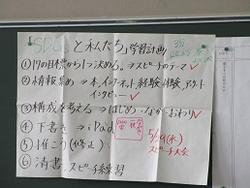 「SDGsと私たち」学習計画
①17の目標から1つ決める。⇒スピーチのテーマ✓
②情報集め ⇒ 本、インターネット、経験・体験、アンケート
インタビュー ✓
③構成を考える⇒はじめ・なか・おわり✓
④下書き ⇒ iPad
⑤推こう(修正)
⑥清書、スピーチ練習
5/29(水)
スピーチ大会